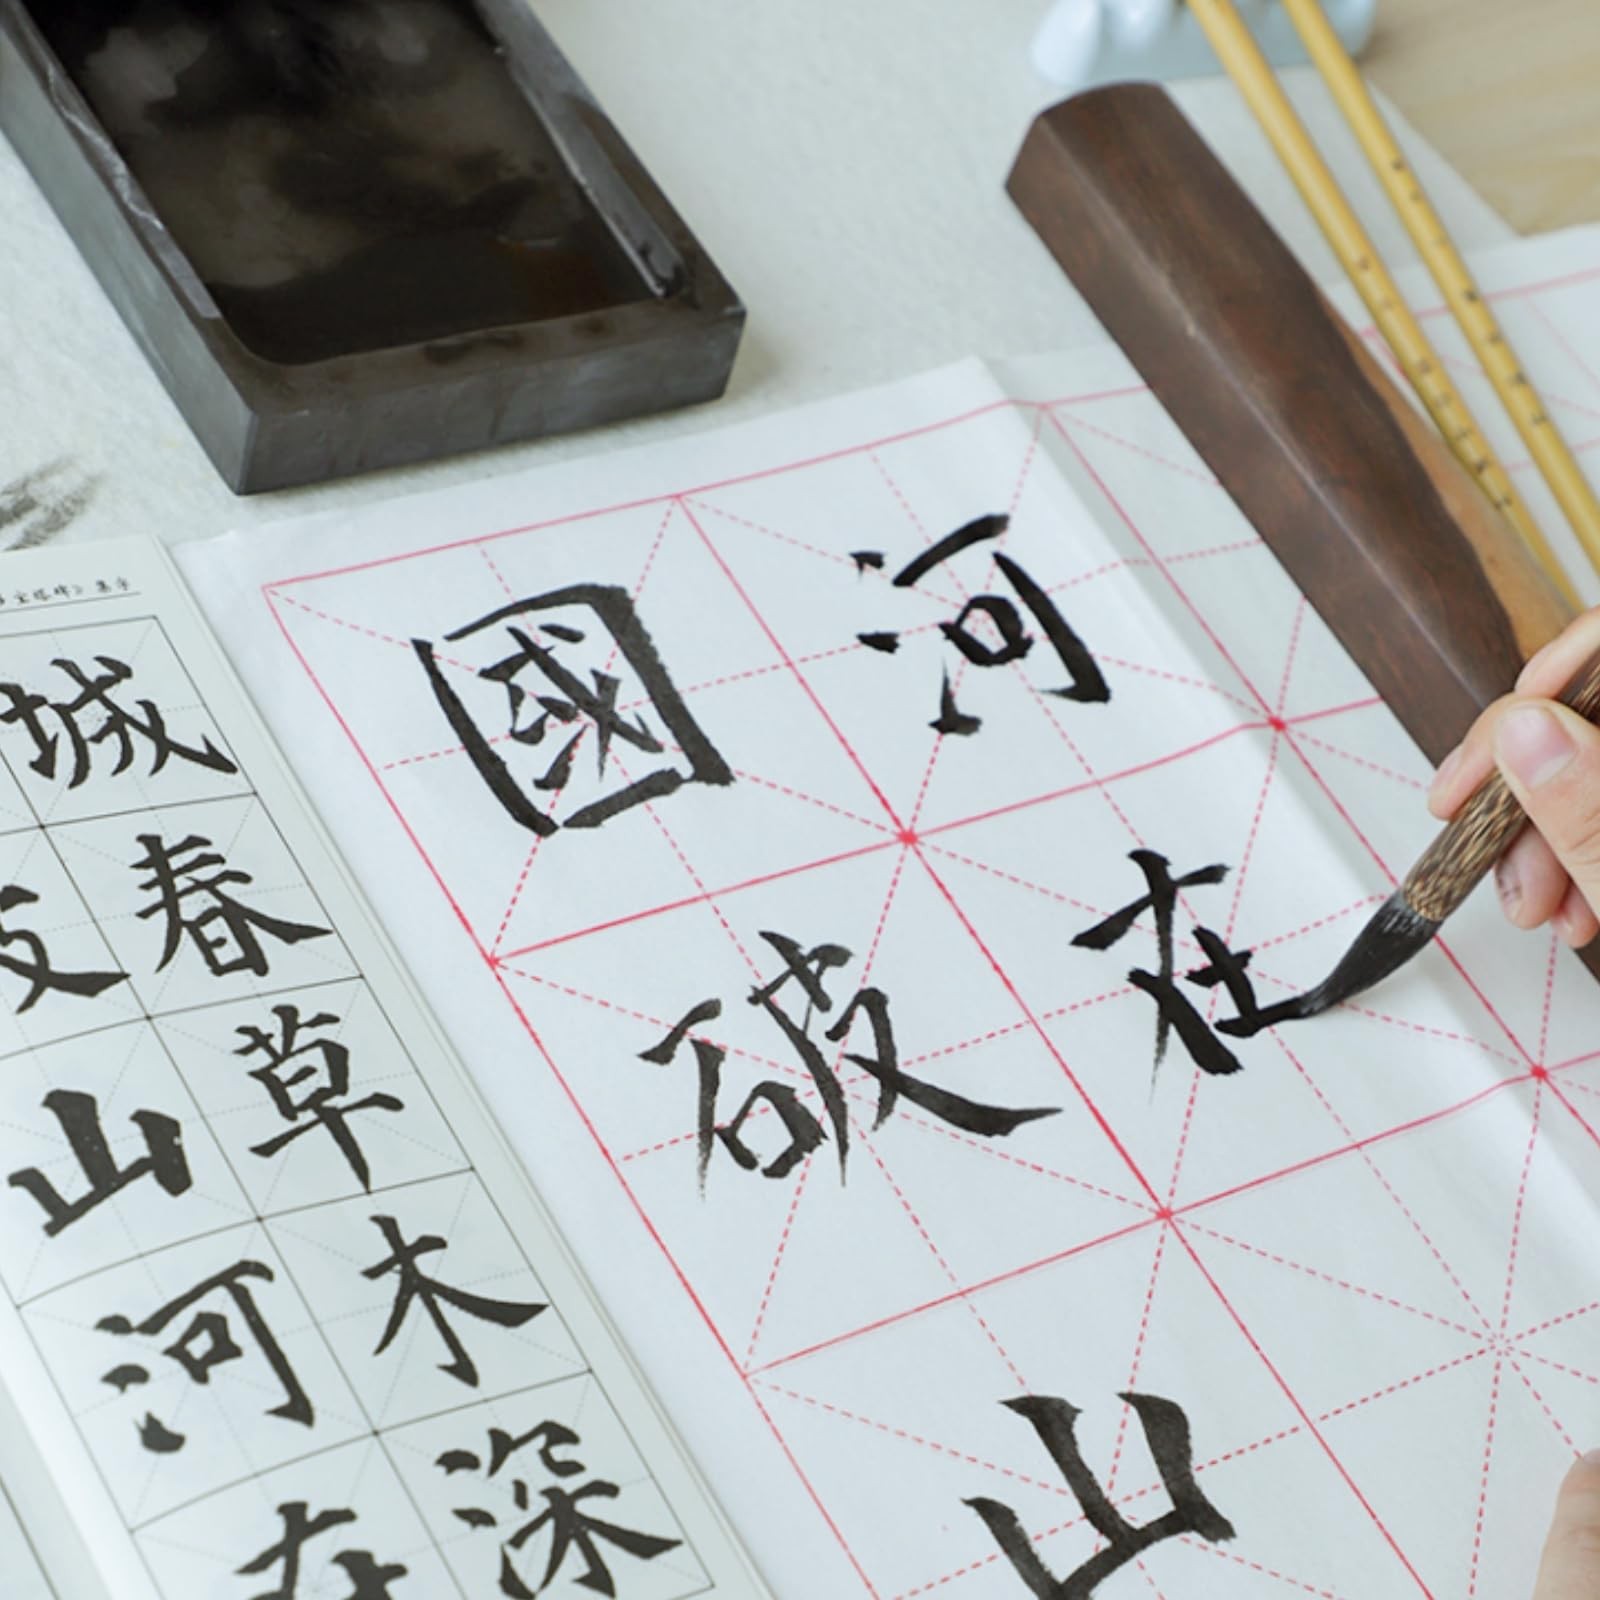 宝塔碑》集字
山河在
城春草木深
國破山
河在